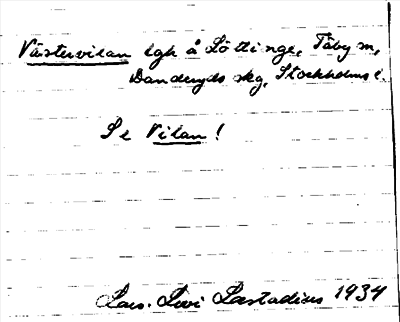 Västervilan lgh å Löttinge, Täby sn,
Danderyds skg, Stockholms l.
Se Vilan!
Lars. Levi Læstadius 1934